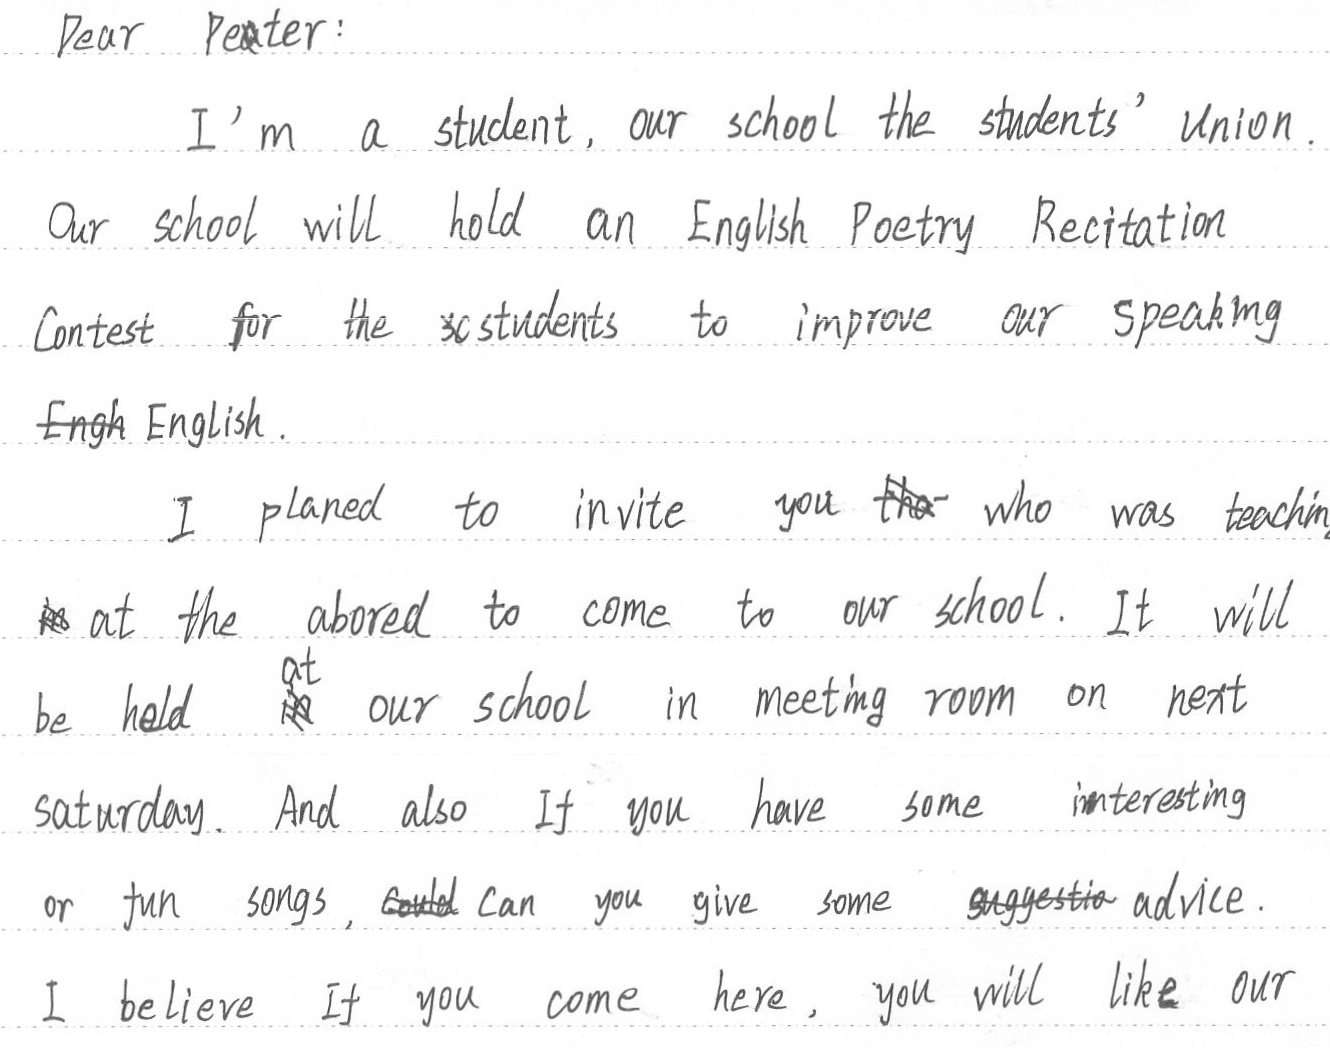 Dear Peater:
I'm a student, our school the students' Union.
Our school will hold an English Poetry Recitation
Contest for the students to improve our speaking
Engh English.
I planed to invite you tha who was teachin
at the abored to come to our school. It will
at
be held in our school in meeting room on next
saturday. And also If you have some interesting
or fun songs, could can you give some suggestio advice.
I believe If you come here, you will like our